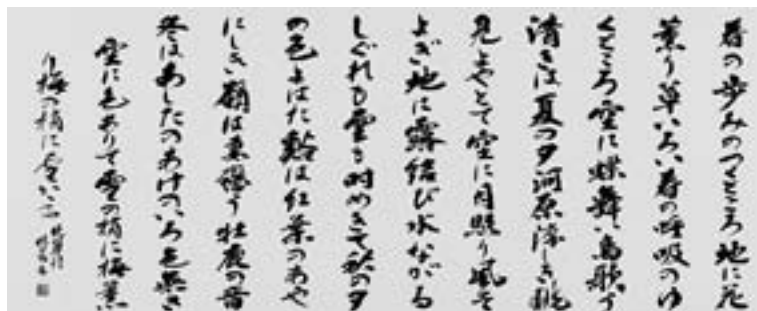 春の歩みのつくところ地に花
薫り草いろい春の呼吸のゆ
くところ空に蝶舞い鳥歌う
清きは夏の夕河原涼しき眺
見よやとて空に月照り風そ
よぎ地に露結び水ながる
しぐれも雲も時めきて秋の夕
の色よはた 紅葉のあや
にしき 牡鹿の音
冬はあしたのあけのいろ色無き
空に色ありて雪の梢に梅薫
り梅の梢に雪